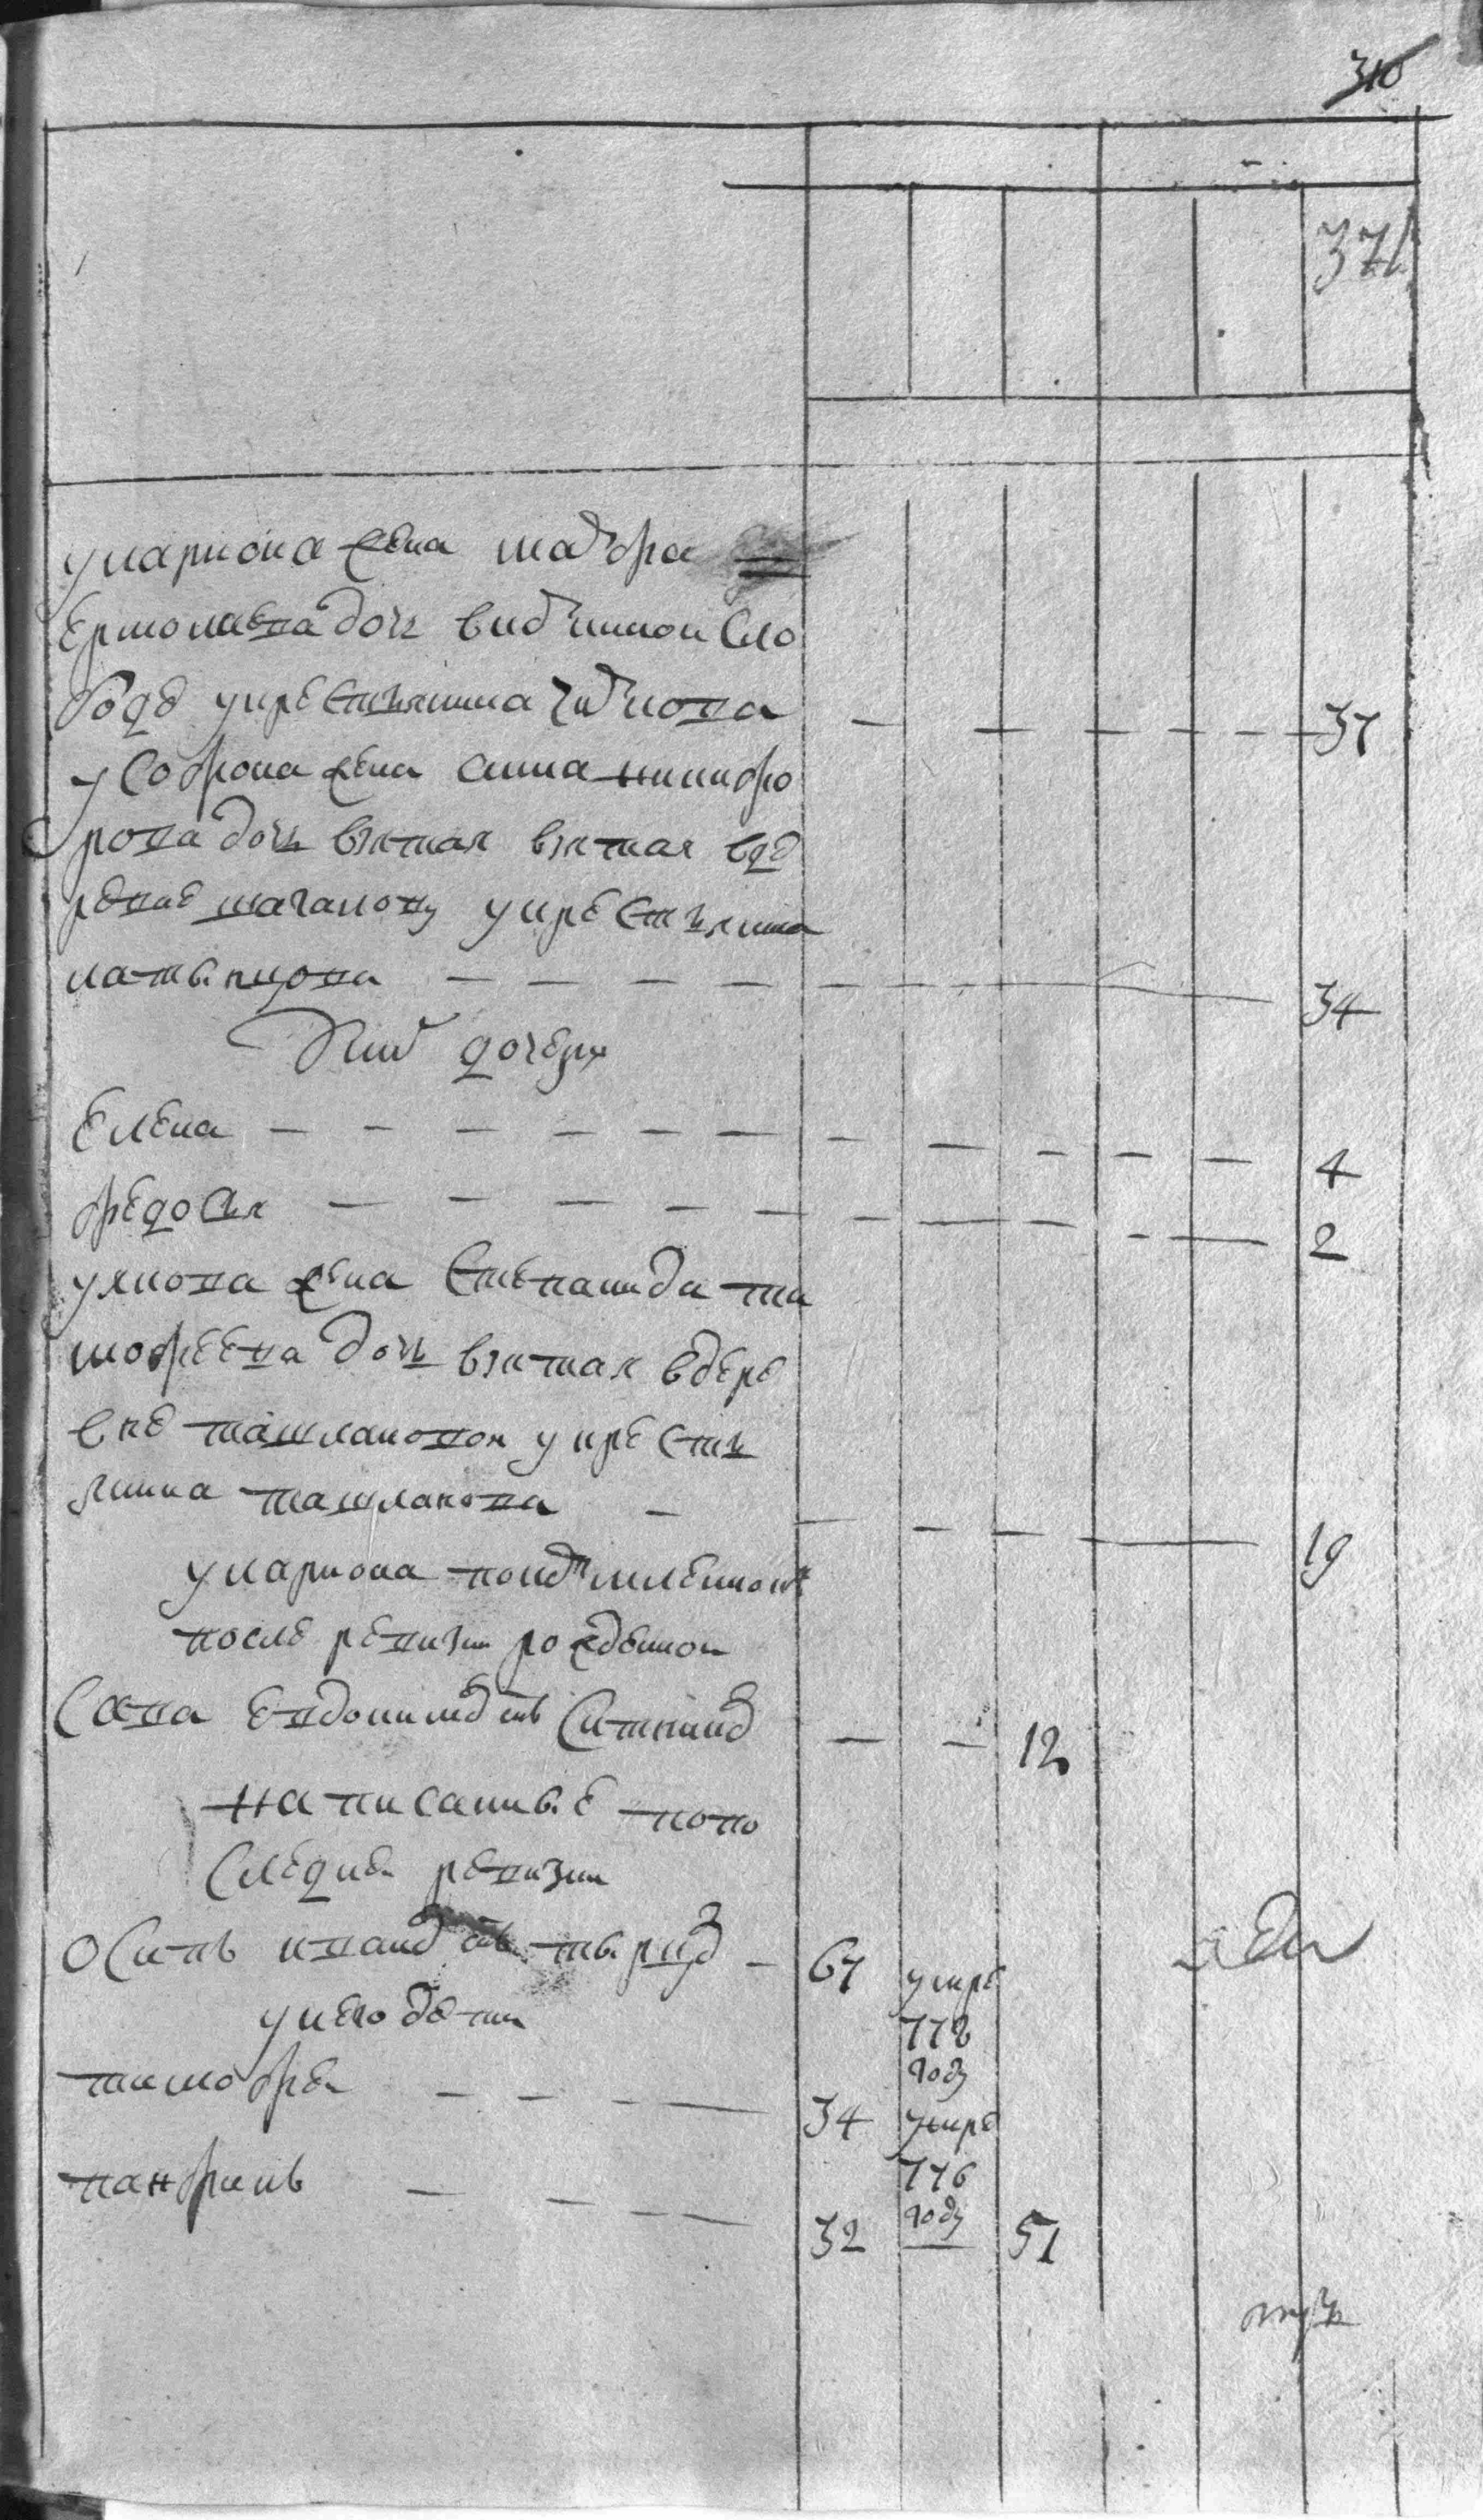 310
371
у лариона жена матрра
ермолаева дочь в сло
боде у крестьянина 37
у софрона жена анна никифо
рова дочь взятая взятая в де
ревне шагалову у крестьянина
латынцова 34
них дочери
елена 4
федосья 2
у якова жена степанида ти
мофеева дочь взятая в дере
вне ташлановои у крестья
янина ташланова 19
у лариона
после ревизии рожденои
сава евдокимов снъ ситников 12
написаныe по по
следней ревизии
осипъ иванов снъ 67 умре
772
году
у него дети
тимофеи 34 умре
776
году
панфилъ 32 51